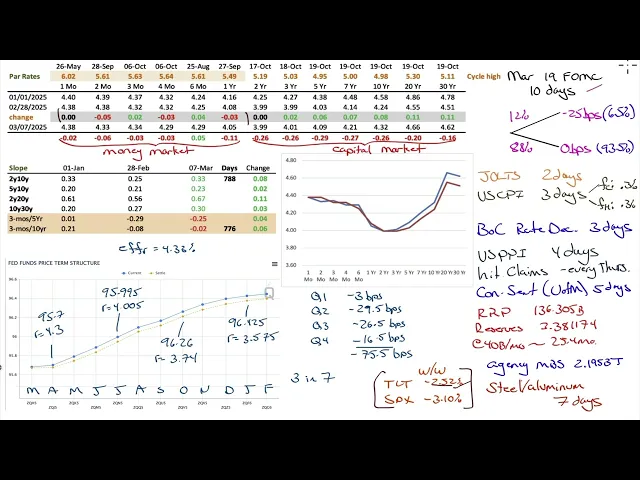 26-May 28-Sep 06-Oct 06-Oct 25-Aug 27-Sep 17-Oct 18-Oct 19-Oct 19-Oct 19-Oct 19-Oct 19-Oct
Par Rates 6.02 5.61 5.63 5.64 5.61 5.49 5.19 5.03 4.95 5.00 4.98 5.30 5.11 Cycle high
1 Mo 2 Mo 3 Mo 4 Mo 6 Mo 1 Yr 2 Yr 3 Yr 5 Yr 7 Yr 10 Yr 20 Yr 30 Yr
01/01/2025 4.40 4.39 4.37 4.32 4.24 4.16 4.25 4.27 4.38 4.48 4.58 4.86 4.78
02/28/2025 4.38 4.38 4.32 4.32 4.25 4.08 3.99 3.99 4.03 4.14 4.24 4.55 4.51
change 0.00 -0.05 0.02 -0.03 0.04 -0.03 0.00 0.02 0.06 0.07 0.08 0.11 0.11
03/07/2025 4.38 4.33 4.34 4.29 4.29 4.05 3.99 4.01 4.09 4.21 4.32 4.66 4.62
-0.02 -0.06 -0.03 -0.03 0.05 -0.11 -0.26 -0.26 -0.29 -0.27 -0.26 -0.20 -0.16
money market
capital market
Slope 01-Jan 28-Feb 07-Mar Days Change
2y10y 0.33 0.25 0.33 788 0.08
5y10y 0.20 0.21 0.23 0.02
2y20y 0.61 0.56 0.67 0.11
10y30y 0.20 0.27 0.30 0.03
3-mos/5Yr 0.01 -0.29 -0.25 0.04
3-mos/10yr 0.21 -0.08 -0.02 776 0.06
effr = 4.33%
FED FUNDS PRICE TERM STRUCTURE
Current Settle
96.4
96
95.6
95.7
r=4.3
95.995
r=4.005
96.26
r=3.74
96.425
r=3.575
M A M J J A S O N D J F
4.80
4.60
4.40
4.20
4.00
3.80
1 Mo 2 Mo 3 Mo 4 Mo 6 Mo 1 Yr 2 Yr 3 Yr 5 Yr 7 Yr 10 Yr 20 Yr 30 Yr
Q1 -3 bps
Q2 -29.5 bps
Q3 -26.5 bps
Q4 -16.5 bps
-75.5 bps
3 in 7
W/W
TLT -2.52%
SPX -3.10%
Mar 19 FOMC
10 days
12% -25bps (65%)
88% 0bps (93.5%)
JOLTS 2 days
USCPI 3 days
BoC Rate Dec. 3 days
USPPI 4 days
Init Claims - every Thurs.
Con. Sent (UofM) 5 days
RRP 136.305B
Reserves 3.381174
@40B/mo ~ 25.4mo.
agency MBS 2.1953T
Steel/aluminum
7 days